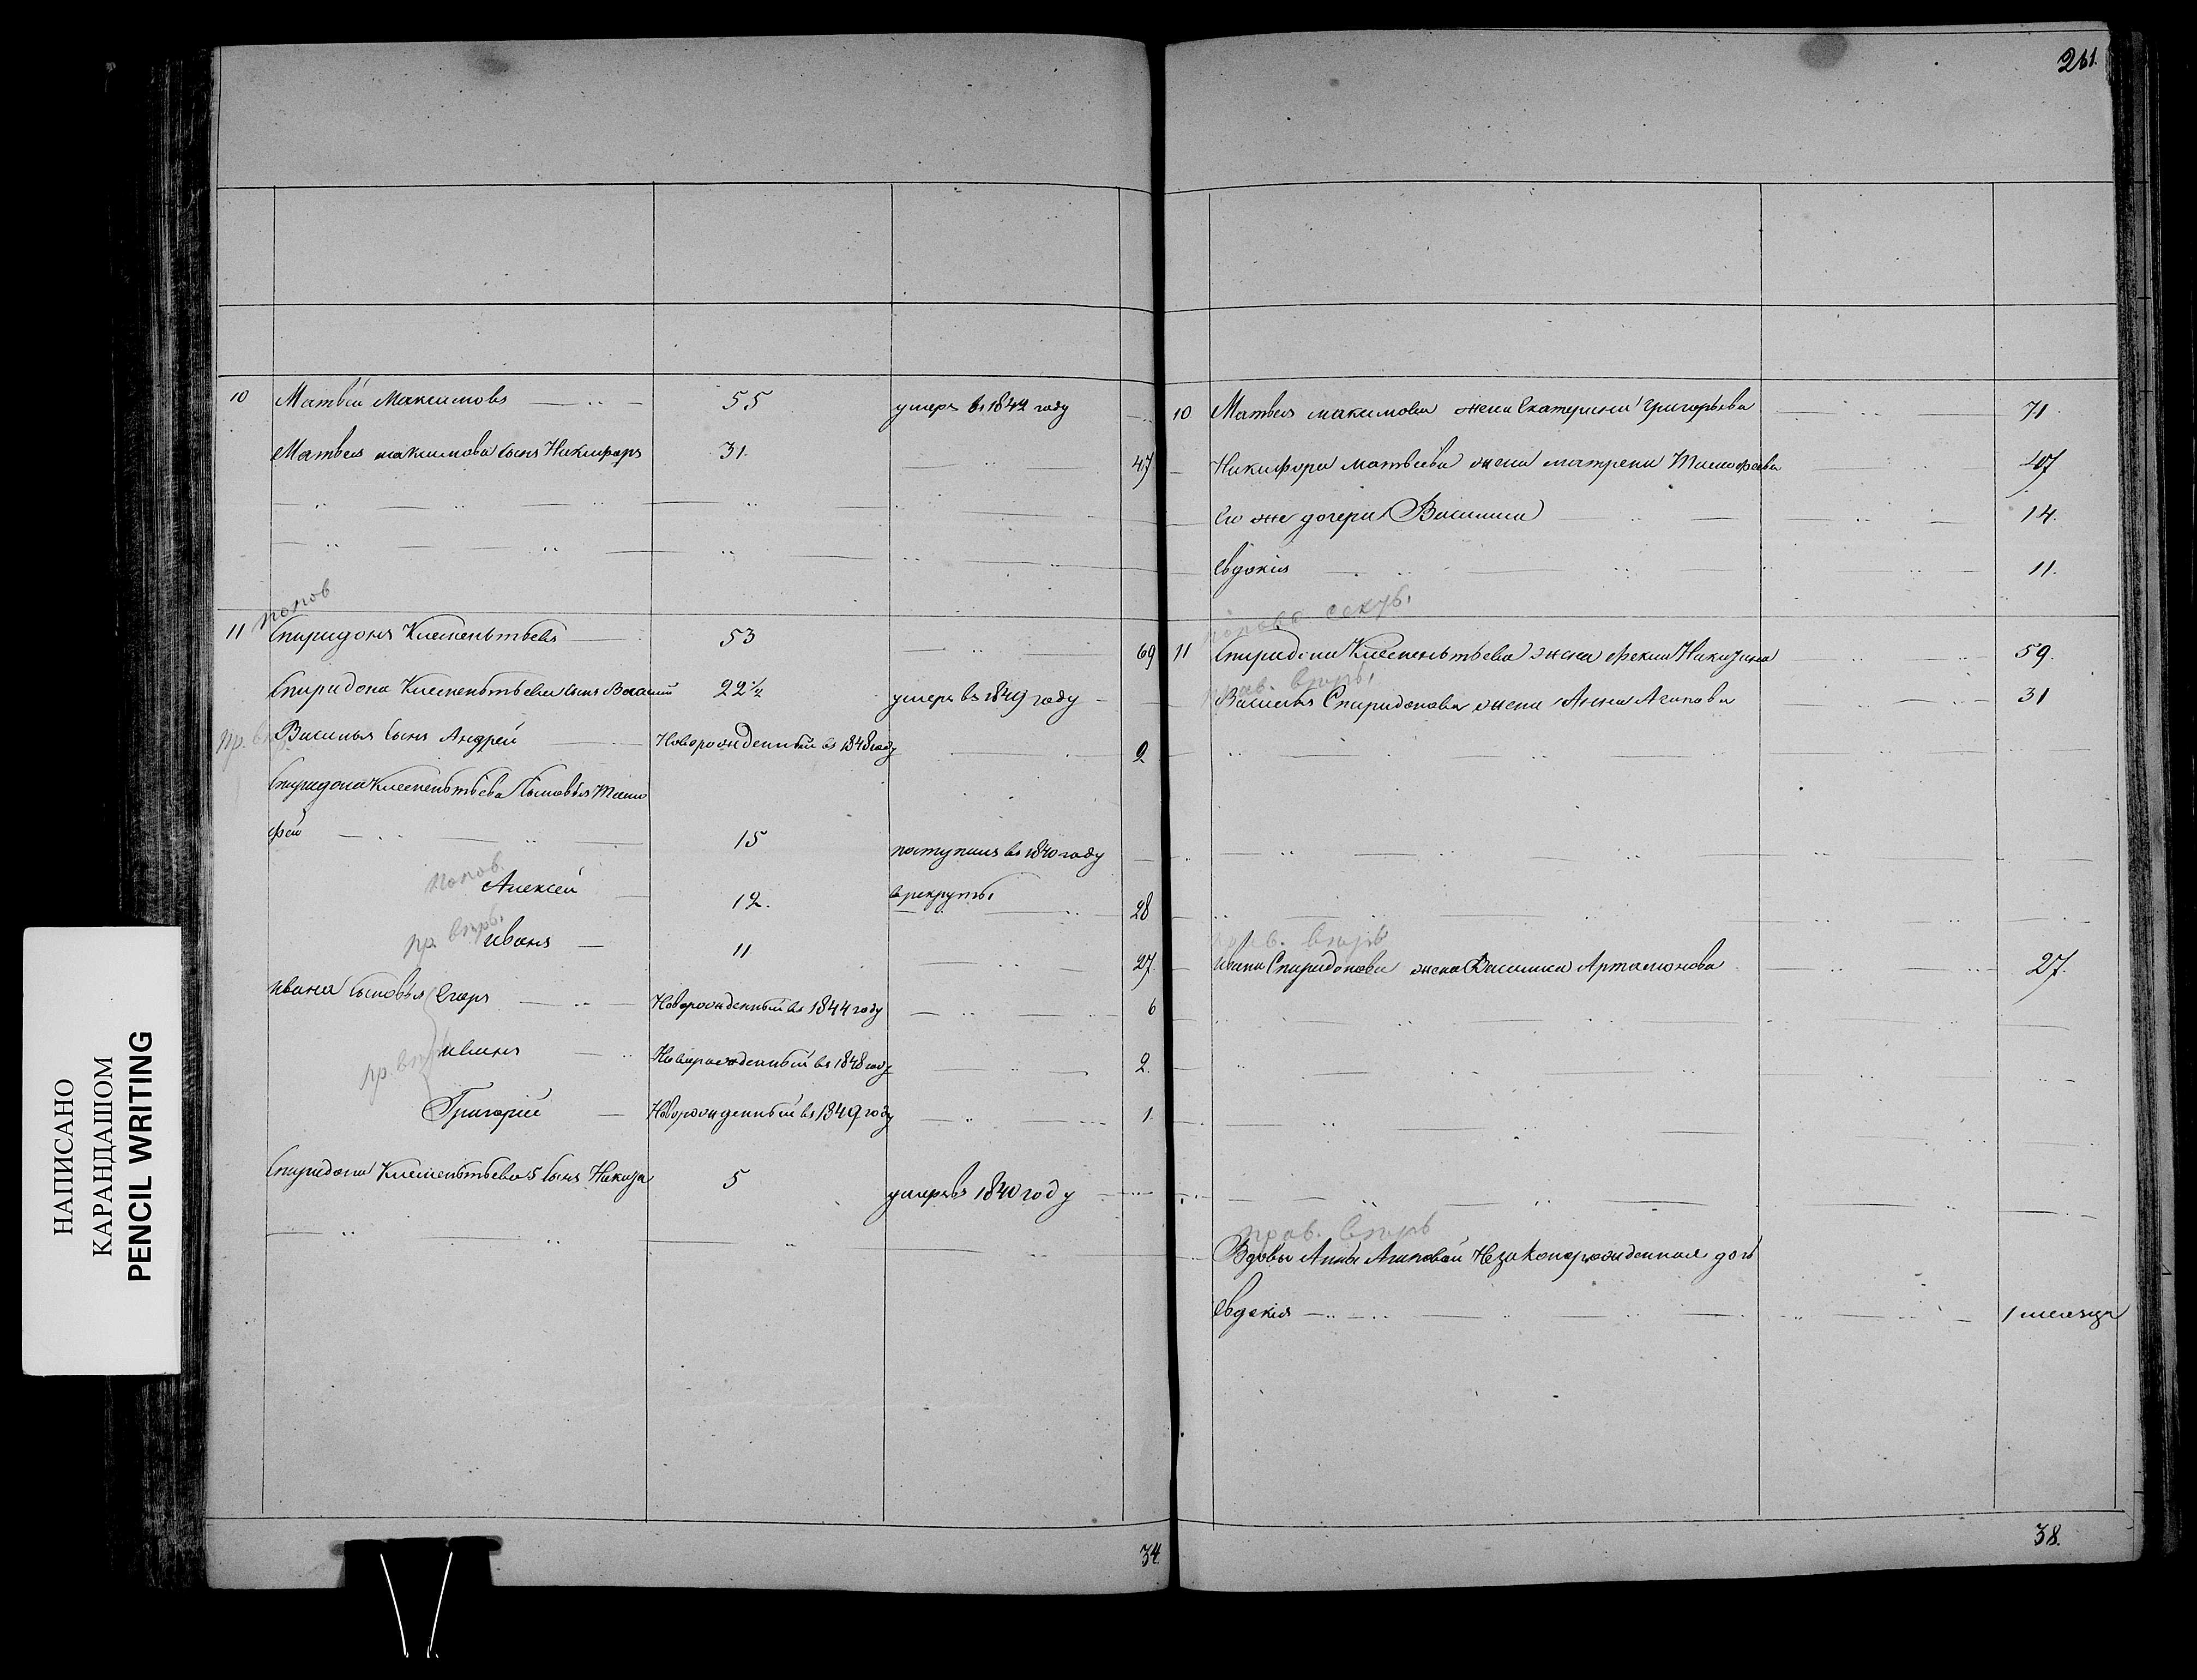 261.
10 Матвей Максимовъ 55 умеръ въ 1844 году
Матвея максимова сынъ Никифоръ 31. 47
попов
11 Спиридонъ Клементьевъ 53 69
Спиридона Клементьева сынъ Василий 22 1/2 умеръ въ 1849 году
пр. Василья сынъ Андрей Новорожденный въ 1848 году 2
Спиридона Клементьева сыновья Тимо
фей 15 поступилъ въ 1840 году
попов. Алексей 12. в рекруты 28
пр. втор. иванъ 11 27
ивана сыновья Егоръ Новорожденный въ 1844 году 6
пр. втор. иванъ Новорожденный въ 1848 году 2.
Григорий Новорожденный въ 1849 году 1.
Спиридона Клементьева 5 сынъ Никита 5 умеръ въ 1840 году
34.
10 Матвея максимова жена Екатерина Григорьева 71
Никифора матвеева жена матрена Тимофеева 47
Его же дочери Василиса 14.
Евдокия 11.
попова
11 Спиридона Клементьева жена фекла Никитина 59.
прав. втор.
Василья Спиридонова жена Анна Агапова 31
прав. втор.
ивана Спиридонова жена Василиса Артамонова 27.
прав. втор.
Вдовы Анны Агаповой Незаконорожденная дочь
Евдокия 1 месяца
38.
НАПИСАНО
КАРАНДАШОМ
PENCIL WRITING